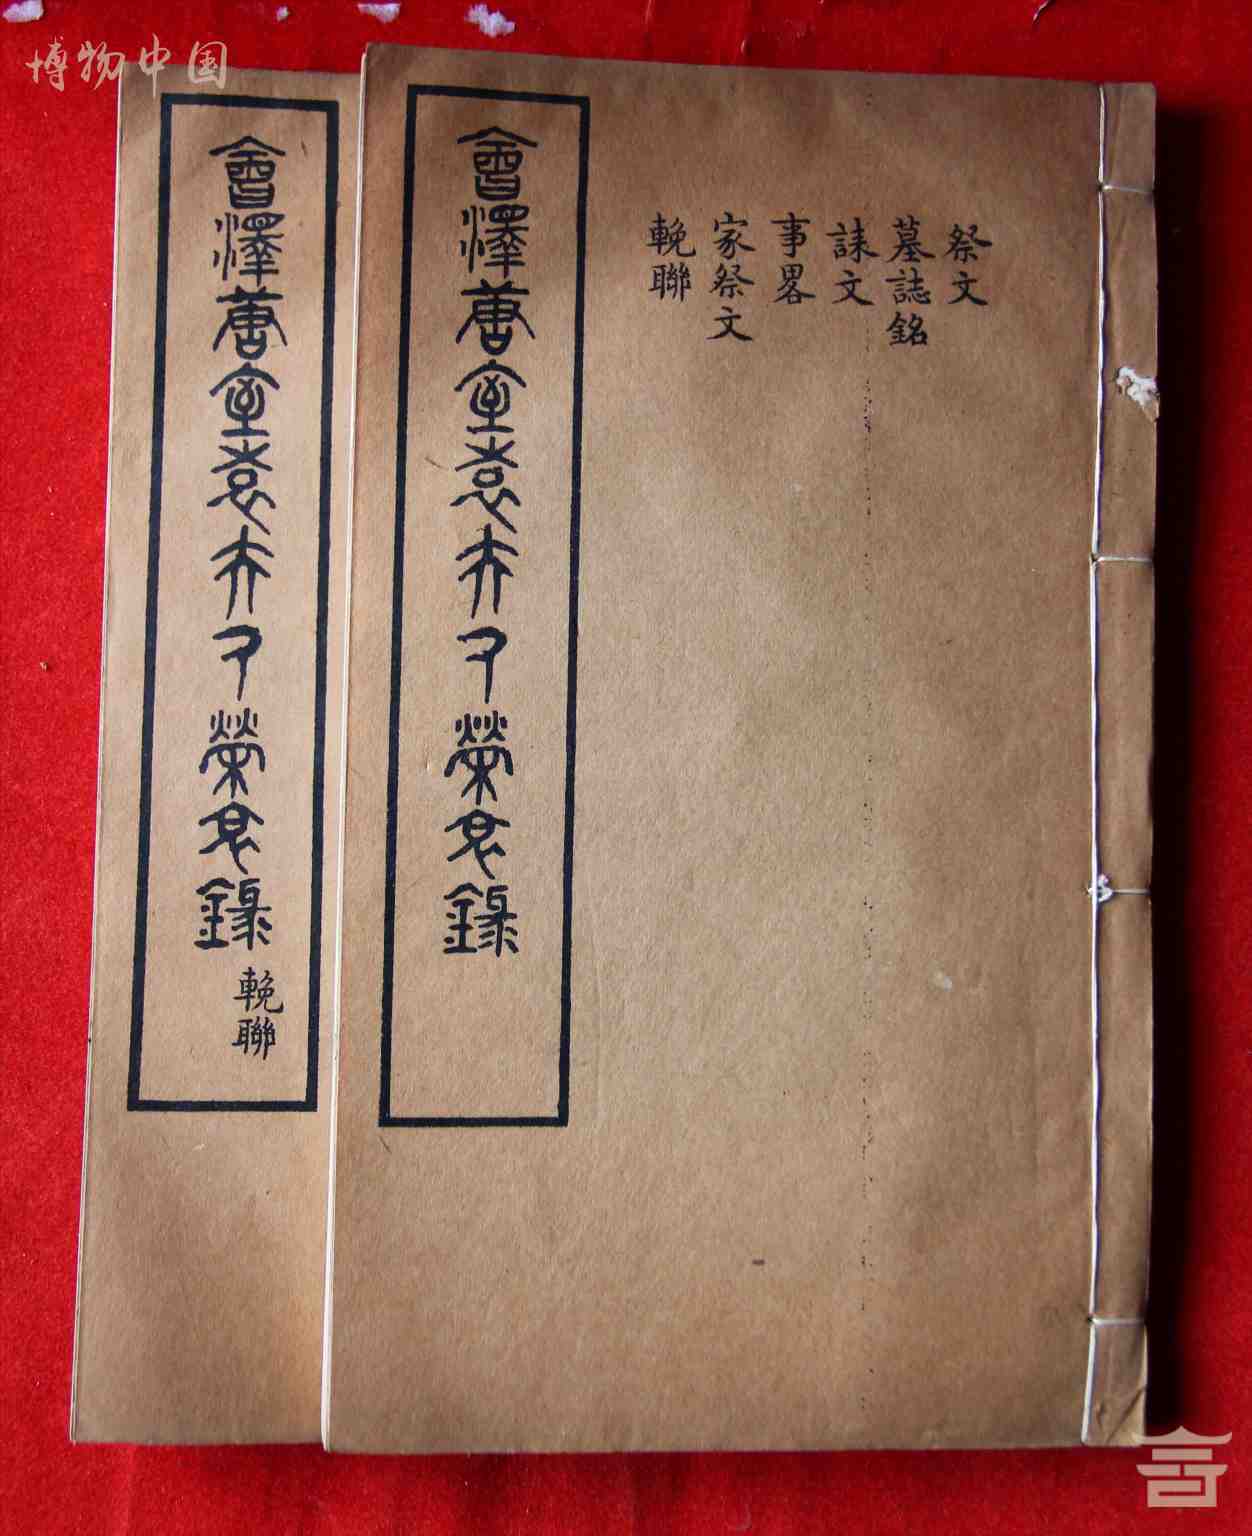 博物中国
祭文
墓誌銘
誄文
事畧
家祭文
輓聯
會澤唐室袁夫人榮哀錄
會澤唐室袁夫人榮哀錄
輓聯